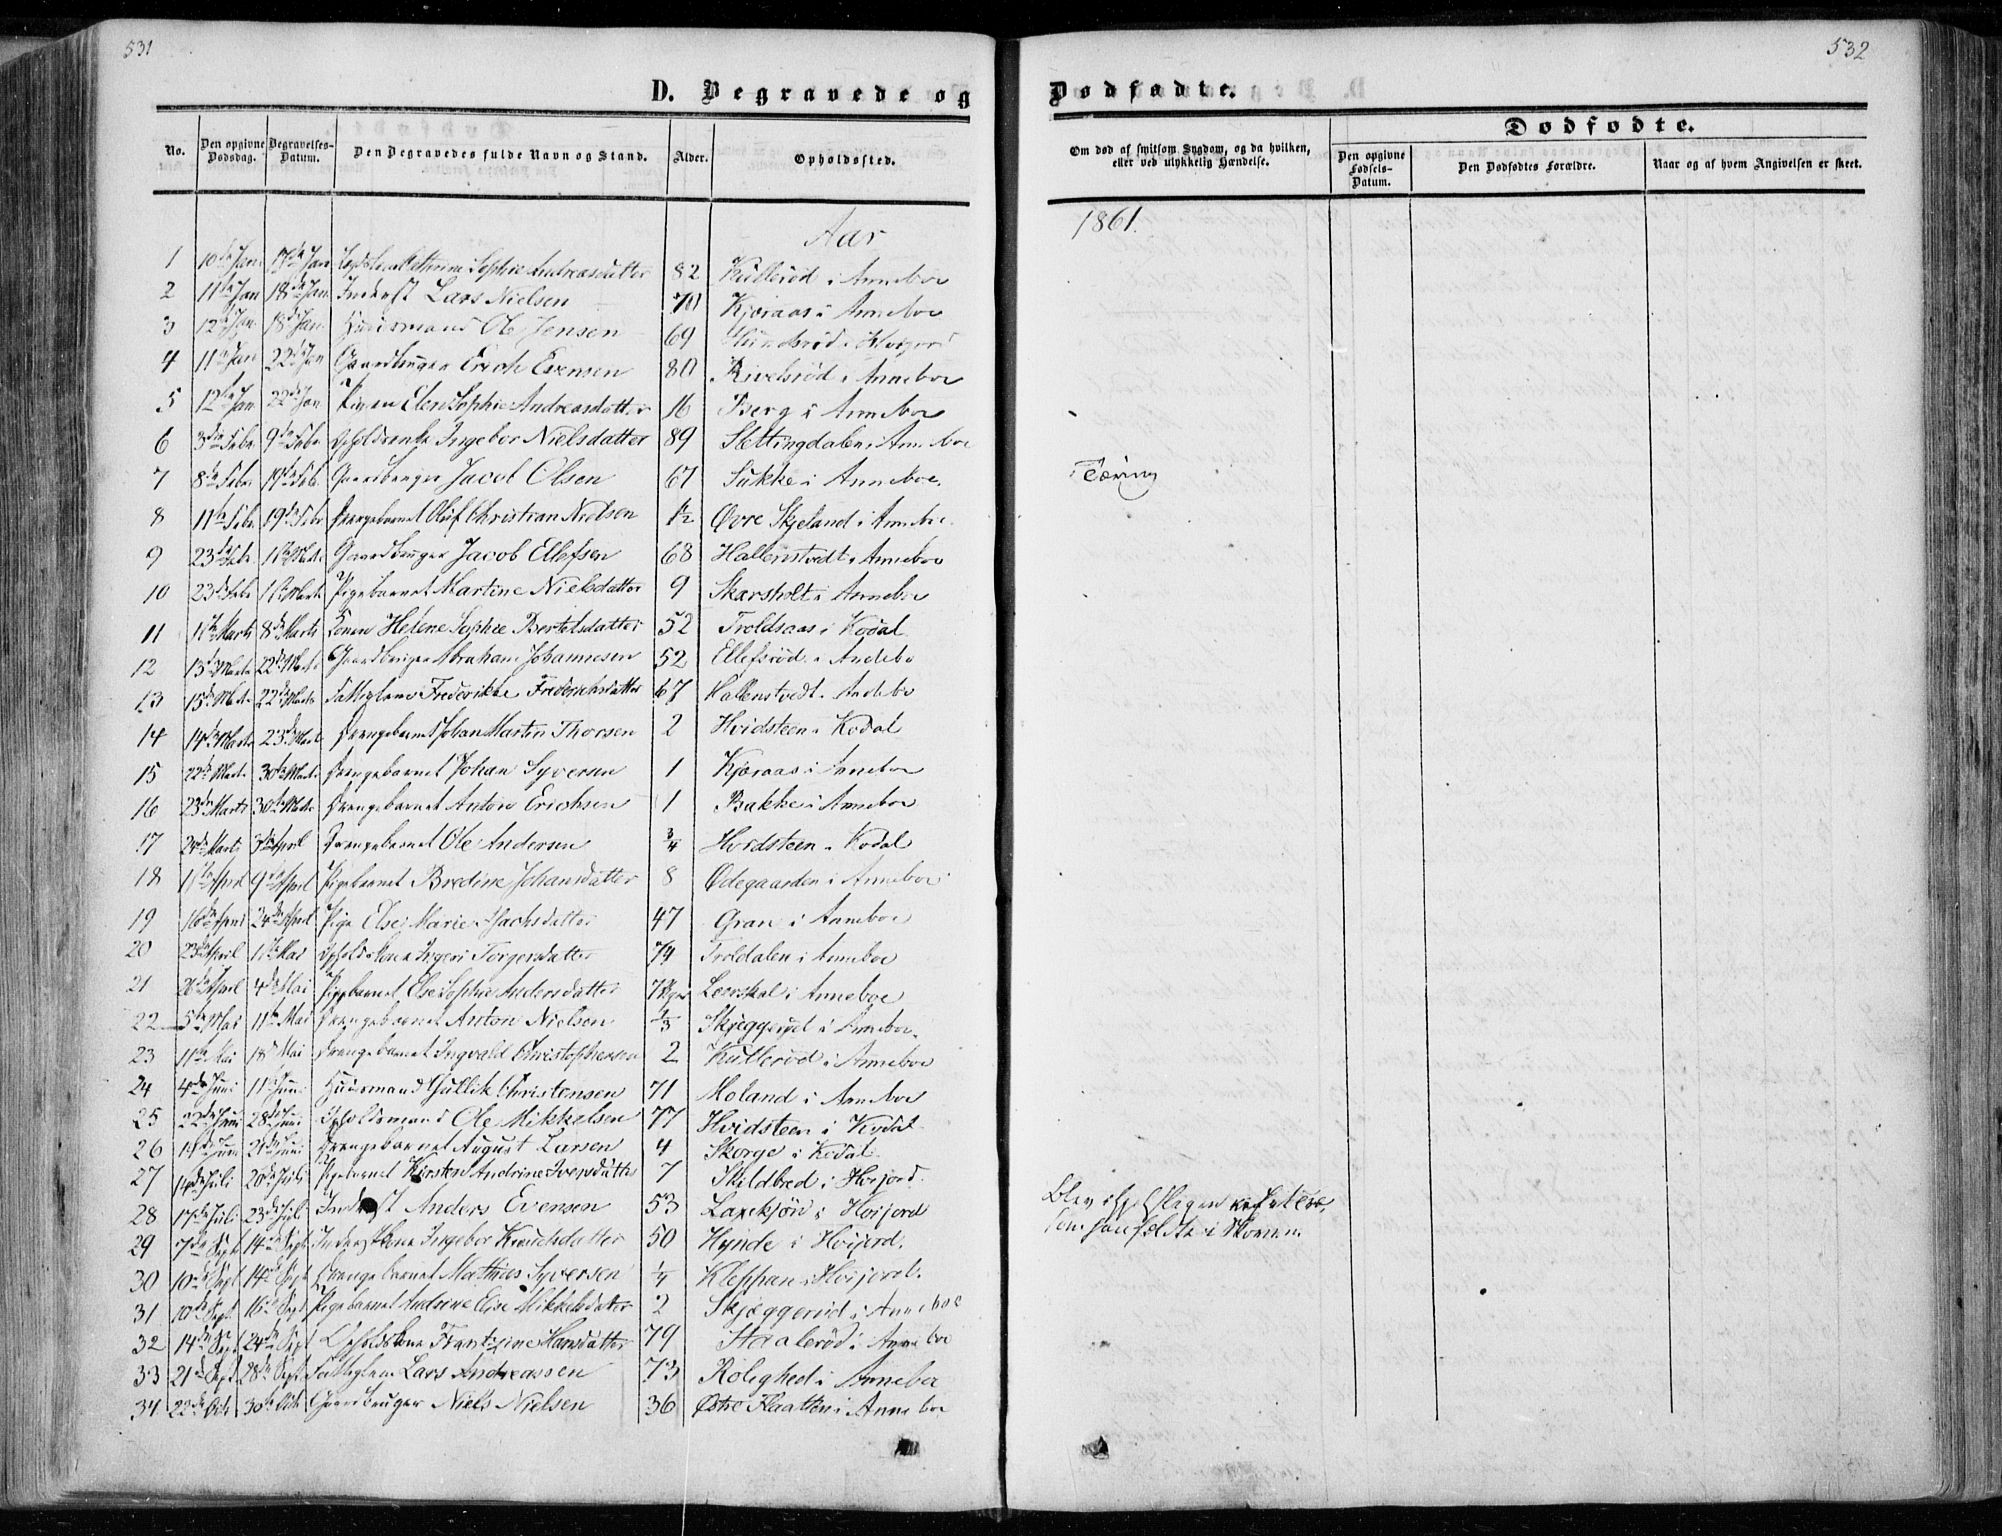 531
532
D. Begravede og
Dødfødte.
No.
Den opgivne Dødsdag.
Begravelses-Datum.
Den Begravedes fulde Navn og Stand.
Alder.
Opholdssted.
Om død af smitsom Sygdom, og da hvilken, eller ved ulykkelig Hændelse.
Dødfødte.
Den opgivne Fødsels-Datum.
Den Dødfødtes Forældre.
Naar og af hvem Angivelsen er skeet.
Aar 1861.
1 10de Jan 17de Jan Sophie Andreasdatter 82 Kullerød i Anneboe
2 11te Jan 18de Jan Inderst Lars Nielsen 70 Kjæraas i Anneboe
3 12te Jan 18de Jan. Huusmand Ole Jensen 69
4 11te Jan 22de Jan Gaardbruger Erich Evensen 80 Rivelsrød i Anneboe
5 12te Jan 22de Jan Pigen Elen Sophie Andreasdatter 16 Berg i Anneboe
6 3die Febr 9de Febr Ingebor Nielsdatter 89 Slettingdalen i Anneboe
7 8de Febr. 19de Feb. Gaardbruger Jacob Olsen 67 Sukke i Anneboe. Tæring
8 11te Febr 19de Febr Drengebarnet Oluf Christian Nielsen 1½ Øvre Skjeland i Anneboe.
9 23de Febr 1ste Marts Gaardbruger Jacob Ellefsen 68 Hallenstvedt i Anneboe
10 23de Febr 1ste Marts Pigebarnet Martine Nielsdatter 9 Skarsholt i Anneboe
11 1ste Marts 8de Marts Konen Helene Sophie Bertelsdatter 52 Troldsaas i Kodal
12 13de Marts 22de Marts Gaardbruger Abraham Johannesen 52 Ellefsrød i Andebo
13 15de Marts 22de Marts Fattiglem Frederikke Frederichsdatter 67 Hallenstvedt i Andebo
14 14de Marts 23de Marts Drengebarnet Johan Martin Thorsen 2 Hvidsteen i Kodal
15 22de Marts 30te Marts Drengebarnet Johan Syversen 1 Kjæraas i Anneboe
16 23de Marts 30te Marts Drengebarnet Anton Erichsen 1 Bakke i Anneboe
17 24de Marts 3die April Drengebarnet Ole Andersen ¾ Hvidsteen i Kodal
18 1ste April 9de April Pigebarnet Bredine Johansdatter 8 Ødegaarden i Anneboe
19 16de April 24de April Pige Else Marie Isachsdatter 47 Gran i Anneboe
20 23de April 1ste Mai Opholdskone Ingeri Torgersdatter 74 Troldalen i Anneboe
21 26de April 4de Mai Pigebarnet Else Sophie Andersdatter 7 Lerskal i Anneboe
22 5te Mai 11te Mai Drengebarnet Anton Nielsen ⅓ Skjeggerød i Anneboe
23 11te Mai 18de Mai Drengebarnet Ingvald Christophersen 2 Kullerød i Anneboe
24 4de Juni 11te Juni Huusmand Gullik Christensen 71 Moland i Anneboe
25 22de Juni 28de Juni Opholdsmand Ole Mikkelsen 77 Hvidsteen i Kodal
26 Juni 21de Juni Drengebarnet August Larsen 4 Skorge i Kodal
27 14de Juli 20de Juli Pigebarnet Kirsten Andrine Iversdatter 7 Skildbred i Hvijord
28 17de Juli 23de Juli Inderst Anders Evensen 53 Laxeksjøn i Hoijord Blev
29 7de Sept 14de Sept Inderstkone Ingebor Knudsdatter 50 Hynde i Hoijord.
30 10de Sept 14de Sept Drengebarnet Mathias Syversen ¼ Kleppan i Hoijord.
31 10de Sept 16de Sept Pigebarnet Andrine Else Mikkelsdatter 2 Skjeggerød i Anneboe
32 14de Sept 24de Sept Opholdskone Frantzine Hansdatter 79 Staalerød i Anneboe
33 21de Sept 28de Sept Fattiglem Lars Andreassen 73 Rolighed i Anneboe
34 22de Oct. 30te Oct. Gaardbruger Niels Nielsen 36 Østre Flaatten i Anneboe